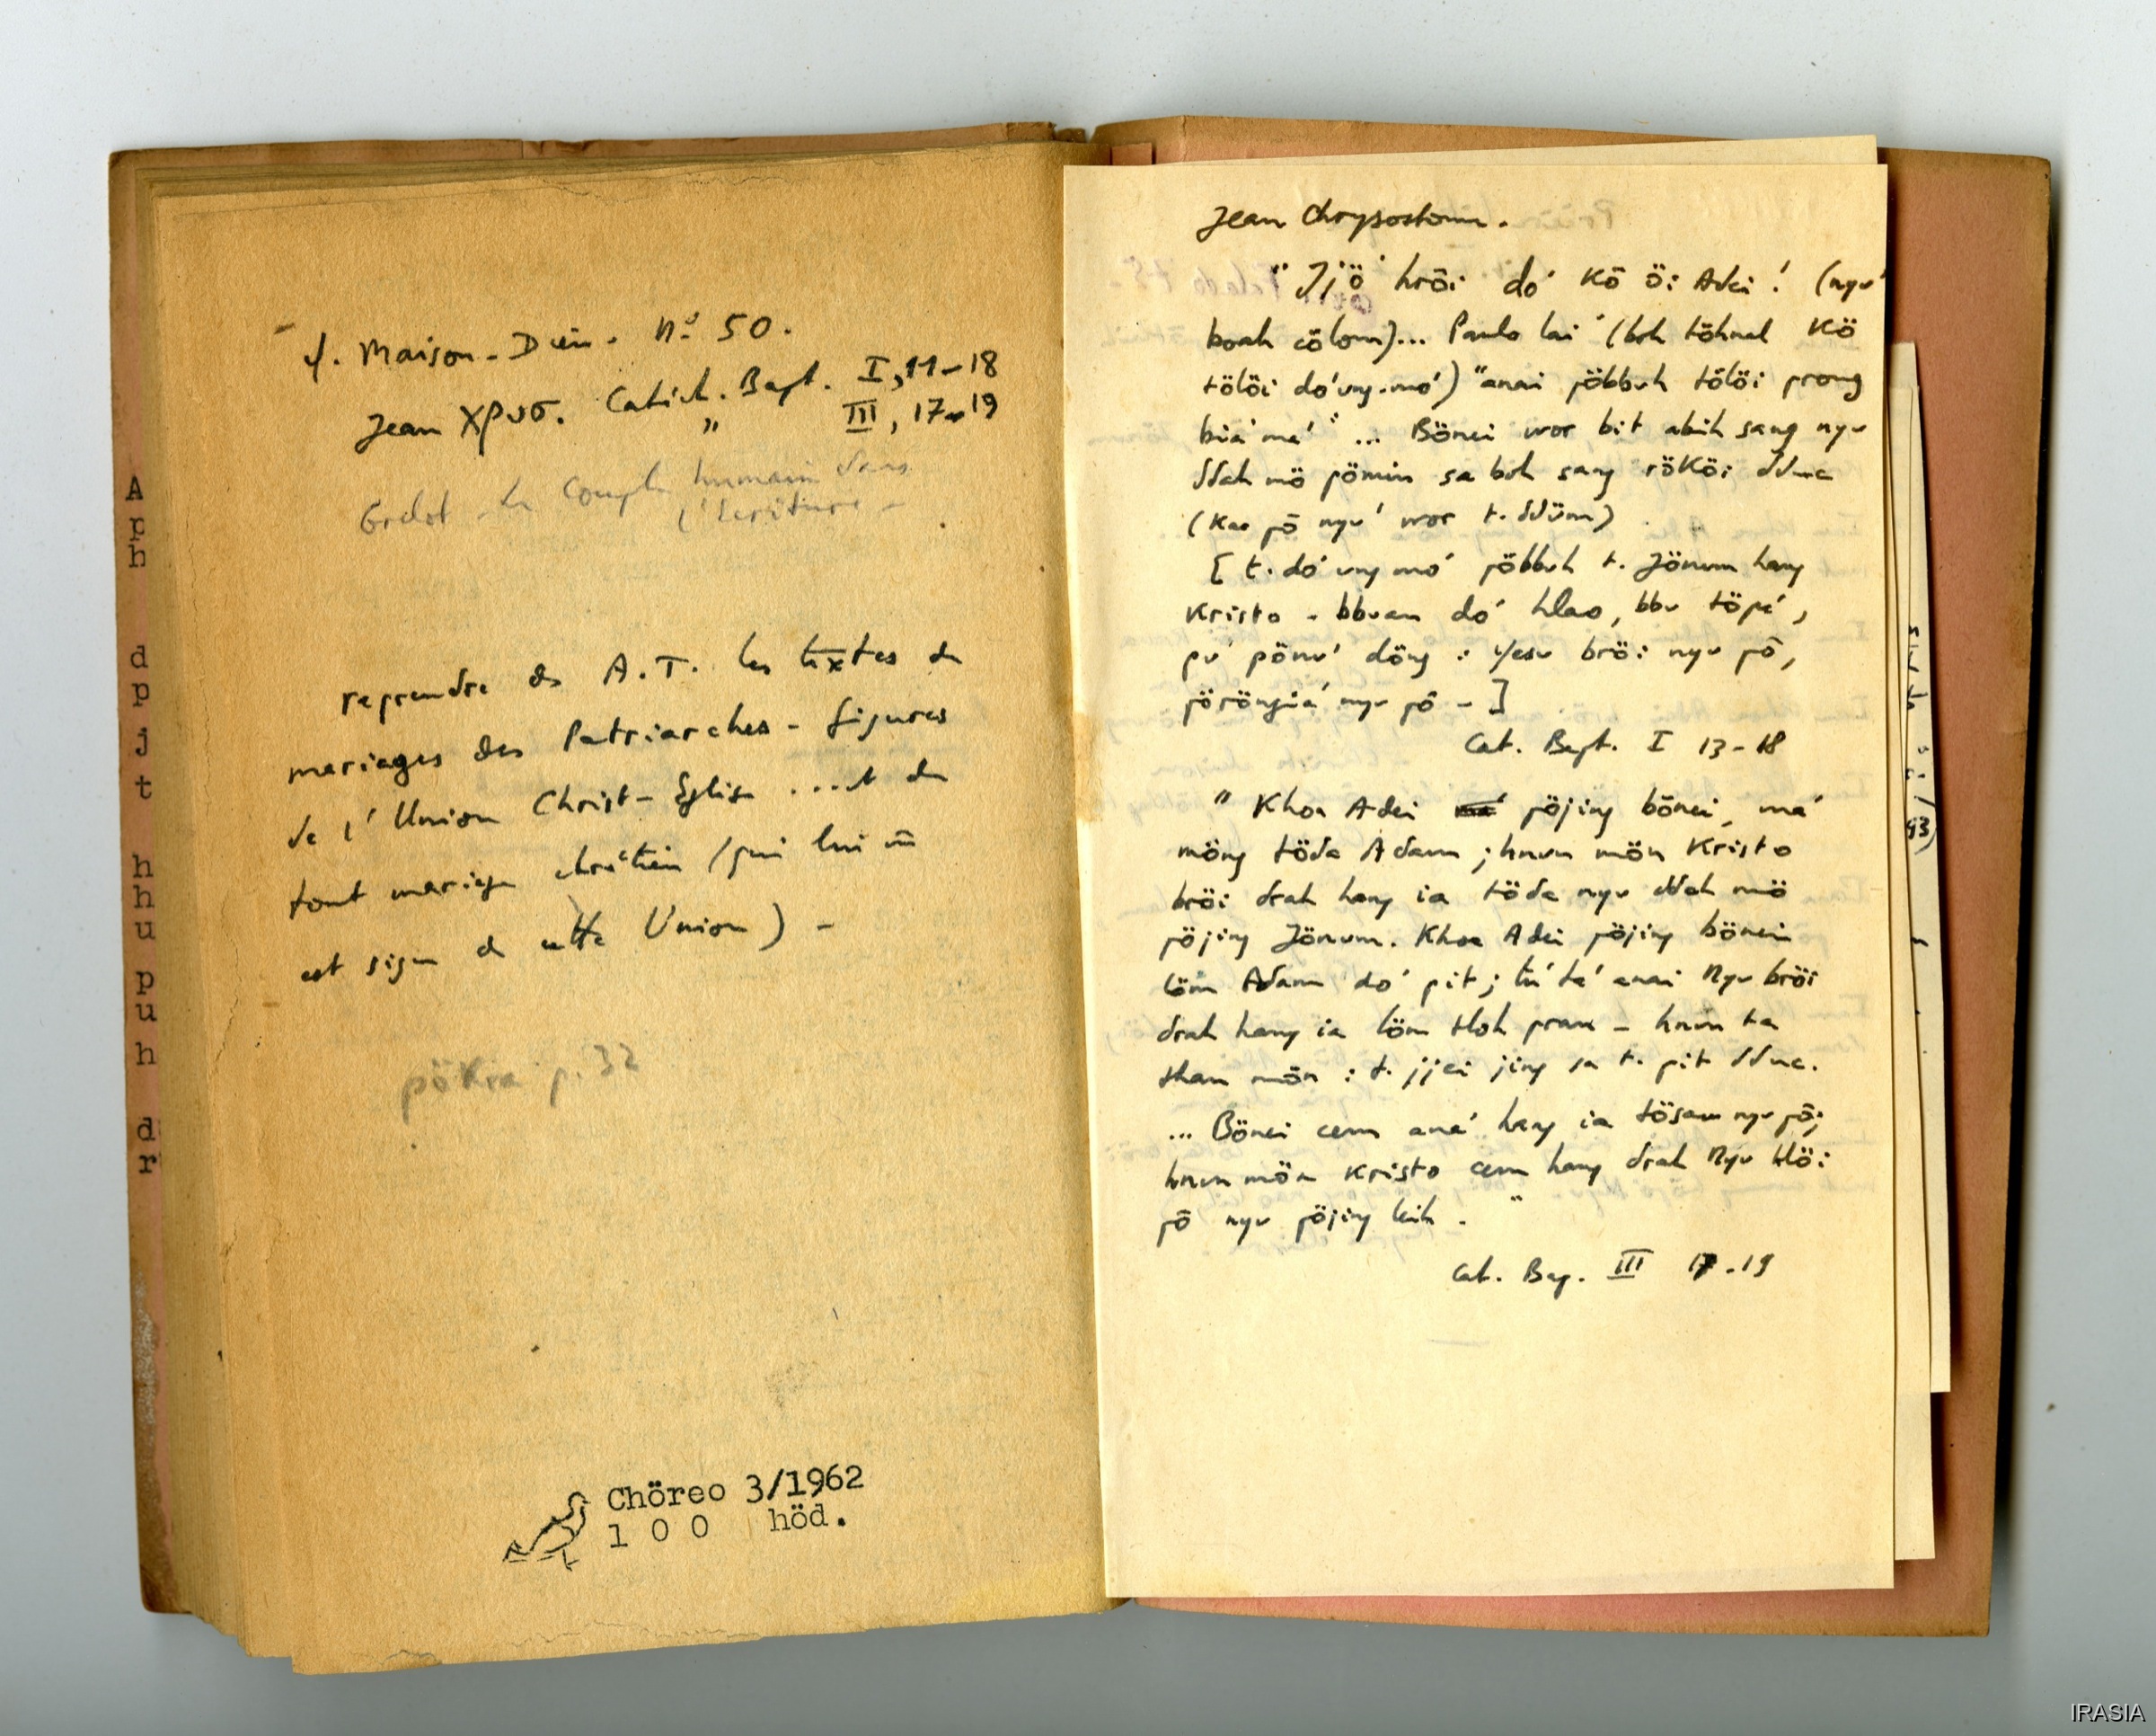 cf. Maison-Dieu. N° 50.
Jean Χρυσ. Catéch. Bapt. I, 11-18
" III, 17-19
Grelot - Le Couple humain dans
l'Écriture -
reprendre ds A.T. les textes de
mariages des Patriarches - figures
de l'Union Christ-Eglise ... et de
tout mariage chrétien (qui lui m̄
est signe de cette Union) -
pökra p. 32
Chöreo 3/1962
1 0 0 höd.
A
p
h
d
p
j
t
h
h
u
p
u
h
d
r
Jean Chrysostome.
"Jjö hröi dó kö öi Adei! (nyu
boah cölom)... Paulo lai (boh töhnal kö
tölöi dó ung-mó) "anai jöbbuh tölöi prong
biă mă" ... Bönai wor bit abih sang nyu
ddah mö pömin sa boh sang rököi dduc
(kac pö nyu wor t. ddüm)
[t. dó ung mó pöbbuh t. Jönum hang
Kristo - bbuan dó hlao, bbu töpă,
pu pönu döng : Yesu bröi nyu pö,
pöröngiă nyu pö - ]
Cat. Bapt. I 13-18
" Khoa Adei pöjing bönai, mă
möng töda Adam ; hnun mön Kristo
bröi drah hang ia töda nyu ddah mö
pöjing Jönum. Khoa Adei pöjing bönai
löm Adam dó pit ; anai Nyu bröi
drah hang ia löm tloh pran - hnun ta
thau mön : t. jjai jing sa t. pit dduc.
... Bönai cem ană hang ia tösau nyu pö;
hnun mön Kristo cem hang drah Nyu tlöi
pö nyu pöjing laih . "
Cat. Bap. III 17-19
IRASIA